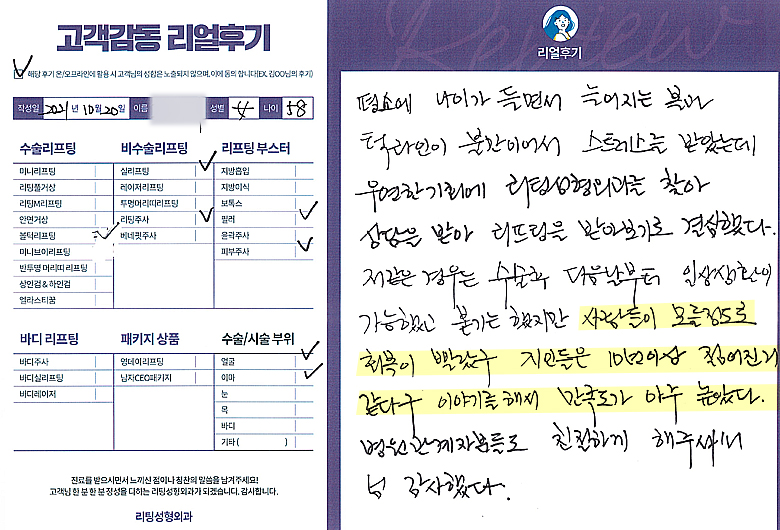 고객감동 리얼후기
해당 후기 온/오프라인에 활용 시 고객님의 성함은 노출되지 않으며, 이에 동의 합니다(EX. 김OO님의 후기)
작성일 2021년 10월 20일 이름 성별 女 나이 58
수술리프팅
미니리프팅
리팅풀거상
리팅M리프팅
안면거상
볼턱리프팅
미니브이리프팅
반투명 머리띠 리프팅
상안검 & 하안검
엘라스티꿈
비수술리프팅
실리프팅
레이저리프팅
투명머리띠리프팅
리팅주사
베네핏주사
리프팅 부스터
지방흡입
지방이식
보톡스
필러
윤곽주사
피부주사
바디 리프팅
바디주사
바디실리프팅
바디레이저
패키지 상품
영데이리프팅
남자CEO패키지
수술/시술 부위
얼굴
이마
눈
목
바디
기타 ( )
진료를 받으시면서 느끼신 점이나 칭찬의 말씀을 남겨주세요!
고객님 한 분 한 분 정성을 다하는 리팅성형외과가 되겠습니다. 감사합니다.
리팅성형외과
Review
리얼후기
평소에 나이가 들면서 늘어지는 볼과
턱라인이 불만이어서 스트레스를 받았는데
우연한기회에 리팅성형외과를 찾아
상담을 받아 리프팅을 받아보기로 결심했다.
저같은 경우는 수술후 다음날부터 일상생활이
가능했고 붓기는 했지만 사람들이 모를정도로
회복이 빨랐구 지인들은 10년이상 젊어진거
같다구 이야기를해서 만족도가 아주 높았다.
병원관계자분들도 친절하게 해주셔서
넘 감사했다.